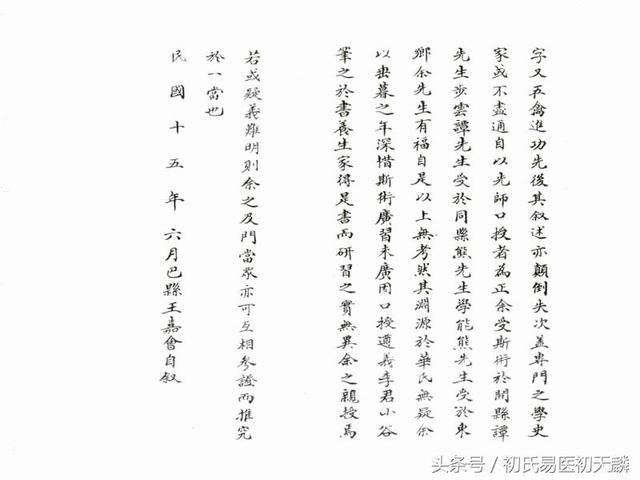 字又五禽進功先後其叙述亦顛倒失次蓋專門之學史
家或不盡通自以先師口授者為正余受斯術於開縣譚
先生步雲譚先生受於同縣熊先生學能熊先生受於東
鄉余先生有福自是以上無考然其淵源於華氏無疑余
以垂暮之年深惜斯術廣習未廣因口授遵義李君小谷
筆之於書養生家得是書而研習之實無異余之親授焉
若或疑義難明則余之及門當衆亦可互相參證而推究
於一當也
民國十五年六月巴縣王嘉會自叙
头条号／初氏易医初天麟